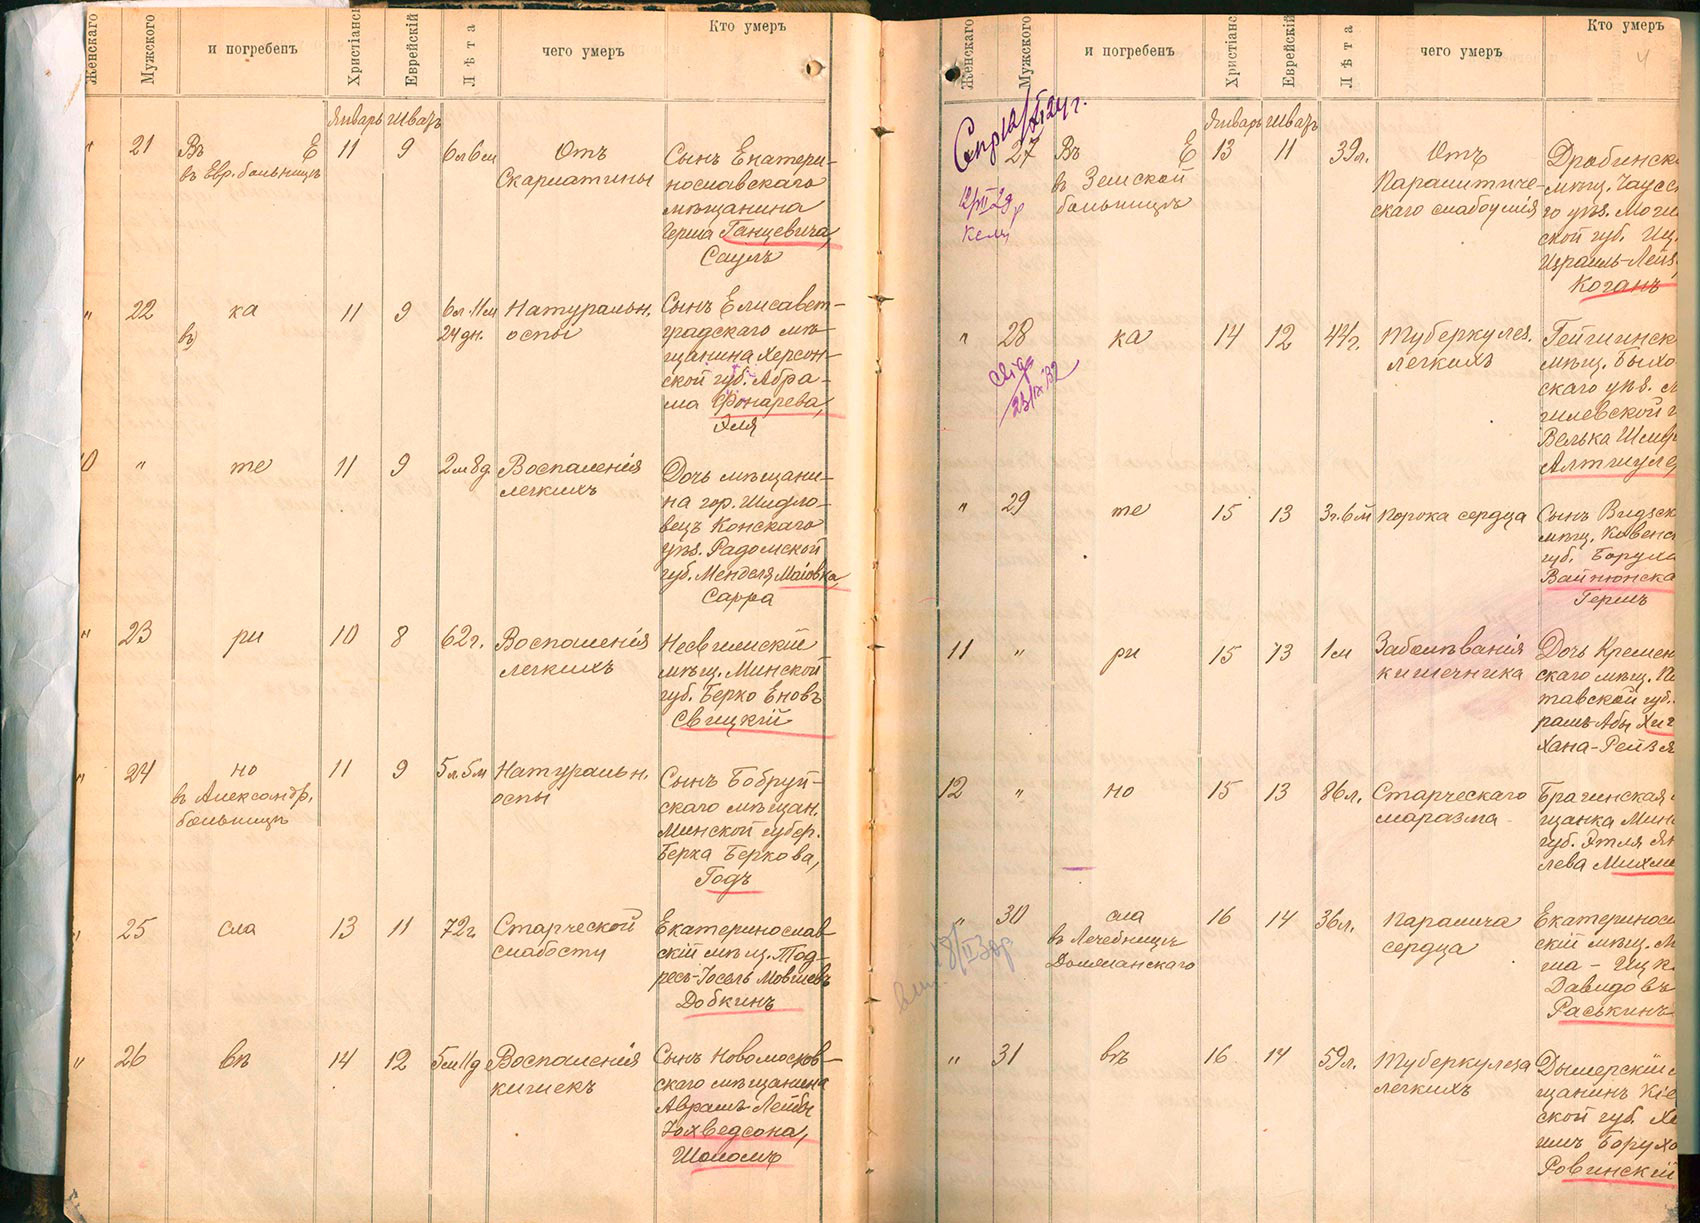 Женскаго
Мужского
и погребенъ
Христіанс
Еврейскій
Лѣта
чего умеръ
Кто умеръ
Январь Шватъ
21
Въ Е
въ Евр. больницѣ
11
9
6л 6м
Отъ
Скарлатины
Сынъ Екатери-
нославскаго
мѣщанина
Герша Ганцевича,
Саулъ
"
22
ка
въ
11
9
6л 11м
24 дн.
Натуральн.
оспы
Сынъ Елисавет-
градскаго мѣ-
щанина Херсон-
ской губ. Абра-
ма Фонарева,
Эля
10
"
те
11
9
2м 8д
Воспаленія
легкихъ
Дочь мѣщани-
на гор. Шидло-
вецъ Конскаго
уѣз. Радомской
губ. Менделя Маіовка,
Сарра
"
23
ри
10
8
62г.
Воспаленія
легкихъ
Несвижскій
мѣщ. Минской
губ. Берко Еновъ
Свицкій
"
24
но
въ Александр.
больницѣ
11
9
5л 5м
Натуральн.
оспы
Сынъ Бобруй-
скаго мѣщан.
Минской губер.
Берка Беркова,
Годъ
25
сла
13
11
72г
Старческой
слабости
Екатеринослав
скій мѣщ. Тод-
ресъ-Іосель Мовшевъ
Добкинъ
"
26
въ
14
12
5м 11д
Воспаленія
кишекъ
Сынъ Новомосков-
скаго мѣщанина
Авраамъ-Лейбы
Іохведсона,
Шоломъ
Женскаго
Мужского
и погребенъ
Христіанс
Еврейскій
Лѣта
чего умеръ
Кто умеръ
4
Январь Шватъ
27
Въ Е
въ Земской
больницѣ
13
11
39л.
Отъ
Паралитиче-
скаго слабоумія
Дрибинск
мѣщ. Чаусс
го уѣз. Моги
ской губ. Иц.
Израиль-Лейз
Коганъ
"
28
ка
14
12
44г.
Туберкулез.
легкихъ
мѣщ. Быхо
скаго уѣз. М
гилевской г
Велька Шмер
Алтшулер
"
29
те
15
13
3г. 6м
Порока сердца
Сынъ Видзск
мѣщ. Ковенс
губ. Боруха
Вайнюнска
Гершъ
11
"
ри
15
13
1м
Заболѣванія
кишечника
Дочь Кремен
скаго мѣщ. По
тавской губ.
рамъ-Абы Хиг
Хана-Рейзя
12
"
но
15
13
86л.
Старческаго
маразма
Брагинская
щанка Минс
губ. Этля Ян
лева Михле
"
30
сла
въ Лечебницѣ
16
14
36л.
Паралича
сердца
Екатериносл
скій мѣщ. М
ша - Ицк
Давидовъ
Раськинъ
"
31
въ
16
14
59л.
Туберкулеза
легкихъ
Дымерскій м
щанинъ Кіе
ской губ. Ха
имъ Борухо
Ровинскій